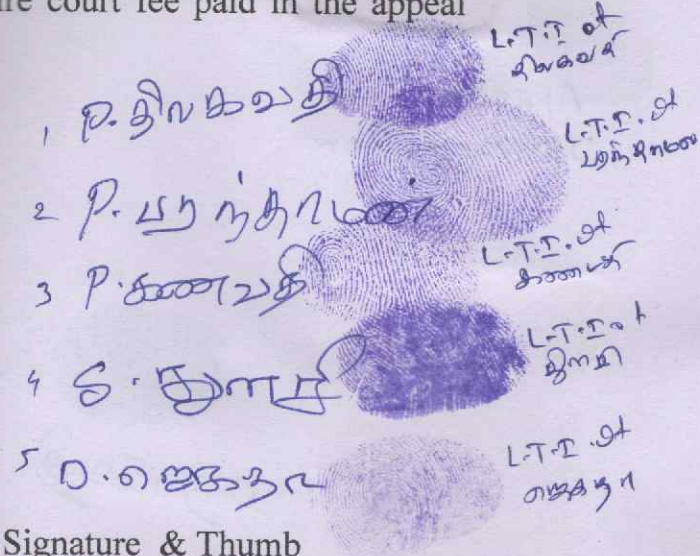 re court fee paid in the appeal
1 P. திலகவதி
L.T.I of
திலகவதி
2 P. பரந்தாமன்
L.T.I. of
பரந்தாமன்
3 P. கணவதி
L.T.I. of
4 S. துளசி
L.T.I. of
துளசி
5 D. ஜெகதா
L.T.I. of
ஜெகதா
Signature & Thumb